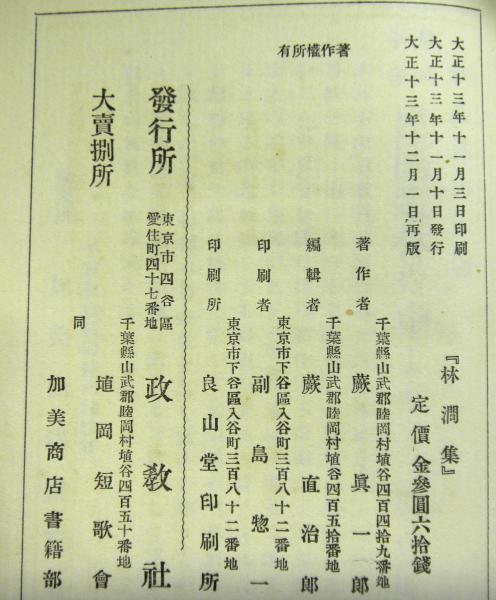 大正十三年十一月三日印刷
大正十三年十一月十日發行
大正十三年十二月一日再版
『林澗集』
定價金參圓六拾錢
著作權所有
千葉縣山武郡睦岡村埴谷四百四拾九番地
著作者 蕨眞一郎
千葉縣山武郡睦岡村埴谷四百五拾番地
編輯者 蕨直治郎
東京市下谷區入谷町三百八十二番地
印刷者 副島惣一
東京市下谷區入谷町三百八十二番地
印刷所 良山堂印刷所
發行所 東京市四谷區愛住町四十七番地 政敎社
千葉縣山武郡睦岡村埴谷四百五十番地
大賣捌所 埴岡短歌會
同 加美商店書籍部